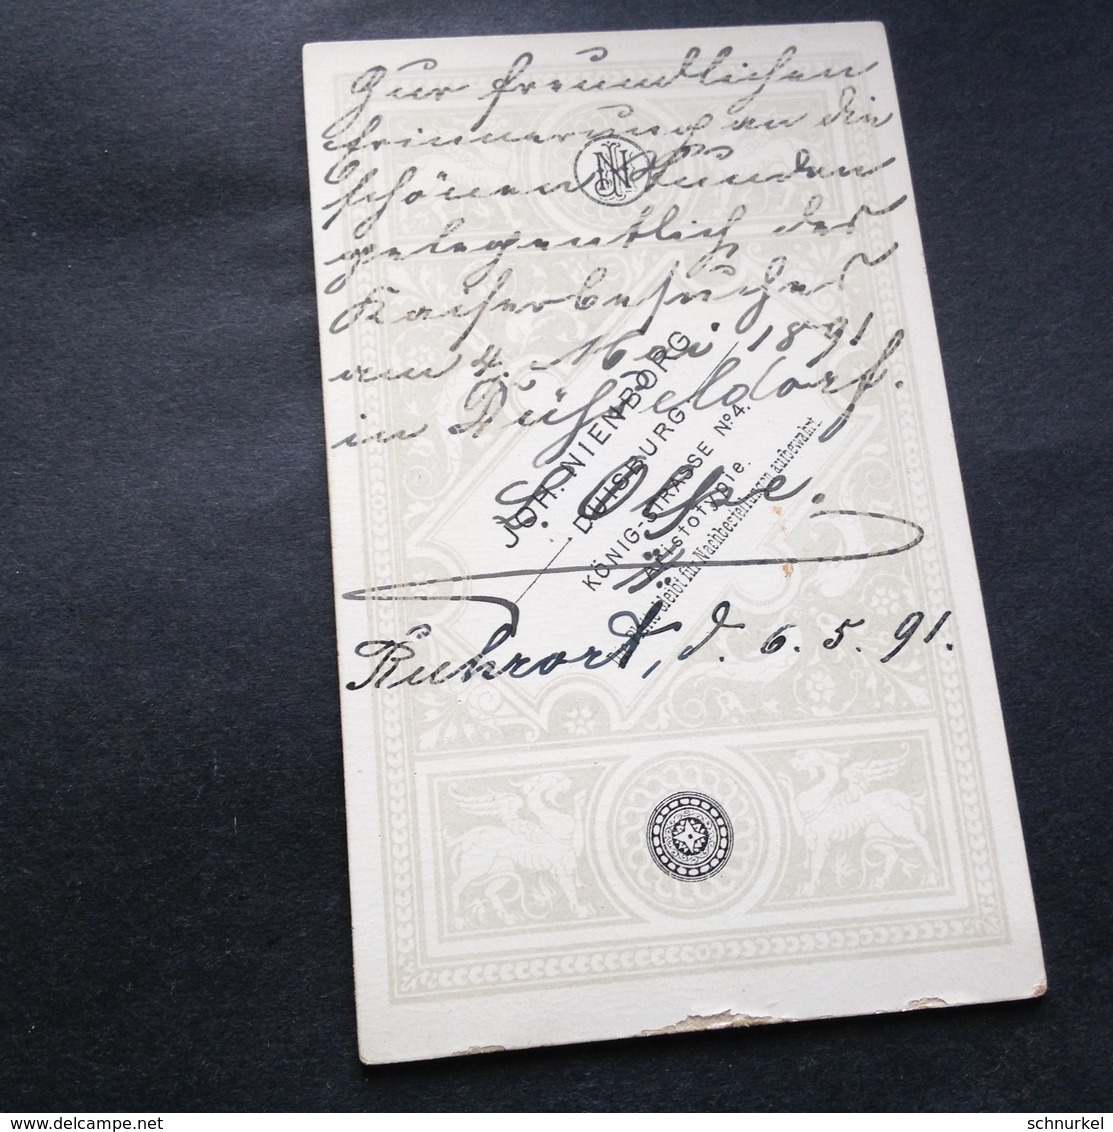 Zur freundlichen
Erinnerung an die
schönen Stunden
gelegentlich des
Kaiserbesuches
am 4. Mai 1891
in Düsseldorf.
Ruhrort, d. 6. 5. 91.
JN
JOH. NIENBORG
DUISBURG
KÖNIG-STRASSE Nº 4.
Aristotypie.
Die Platte bleibt für Nachbestellungen aufbewahrt.
schnurkel